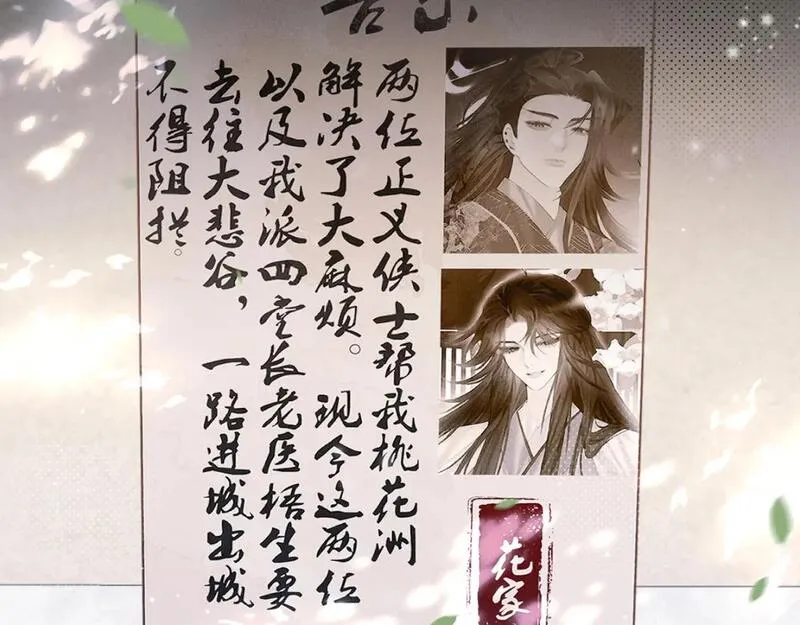 告示
两位正义侠士帮我桃花洲
解决了大麻烦。现今这两位
以及我派四堂长老医梧生要
去往大悲谷，一路进城出城
不得阻拦。
花家